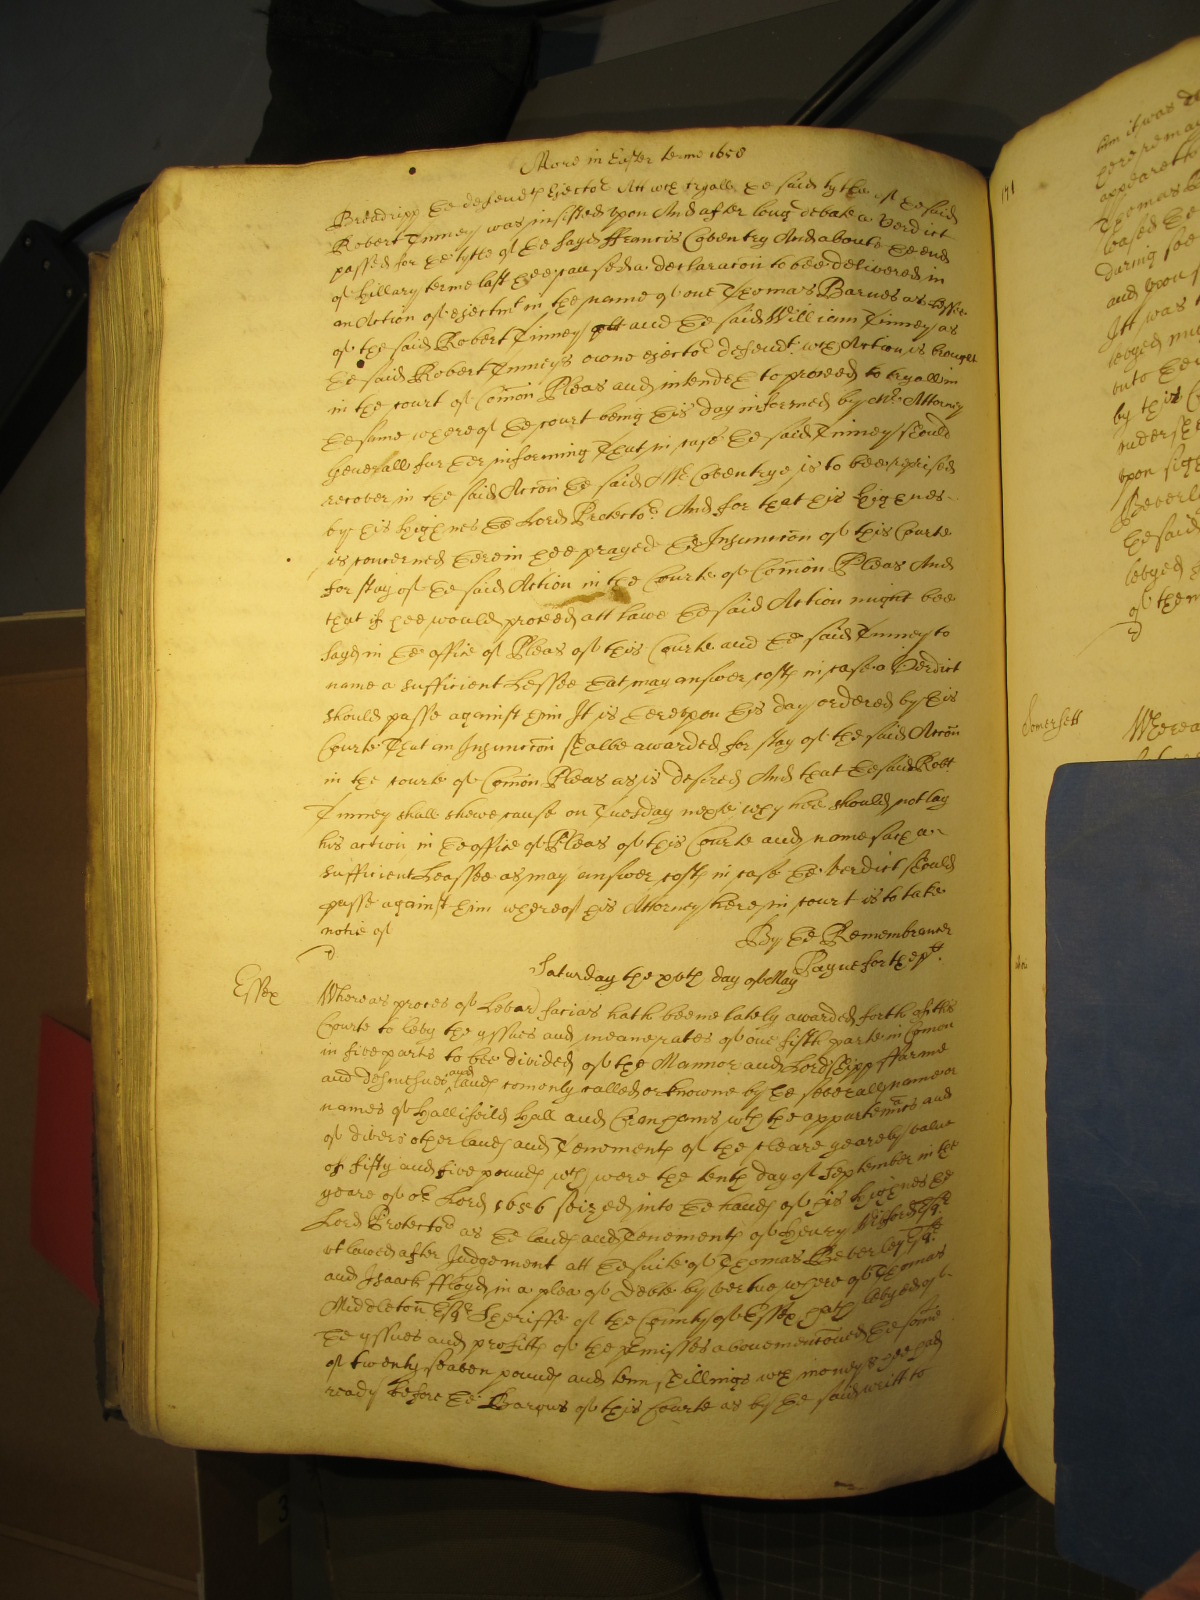 More in Easter terme 1658
Breadripp the defend<sup>t</sup> Ejecto<sup>r</sup> Att w<sup>ch</sup> tryall the said tytle of the said
Robert Tinney was insisted upon And after long debate a Verdict
passed for the tytle of the sayd ffrancis Coventry And about the end
of Hillary terme last hee caused a declaracon to bee delivered in
an Action of ejectm<sup>t</sup> in the name of one Thomas Barnes as lessee
of the said Robert Tinney and the said William Tinney as
the said Robert Tinneys owne ejecto<sup>r</sup> defend<sup>t</sup> w<sup>ch</sup> Action is brought
in the court of Comon Pleas and intendeth to proceed to tryall in
the same whereof the court being this day informed by M<sup>r</sup> Attorney
Generall further informing That in case the said Tinney should
recover in the said Accon the said M<sup>r</sup> Coventrye is to bee reprised
by his Highnes the Lord Protecto<sup>r</sup> And for that his Highnes
is concerned therein hee prayed the Injuncion of this Courte
for stay of the said Action in the Courte of Comon Pleas And
that if hee would proceed att lawe the said Action might bee
layd in the office of Pleas of this Courte and the said Tinney to
name a sufficient Lessee that may answer costs in case a Verdict
should passe against him It is thereupon this day ordered by this
Courte That an Injuncon shalbe awarded for stay of the said Accon
in the courte of Comon Pleas as is desired And that the said Rob<sup>t</sup>
Tinney shall shewe cause on Tuesday next why hee should not lay
his action in the office of Pleas of this Courte and name such a
sufficient Leassee as may answer costs in case the Verdict should
passe against him whereof his Attorney here in court is to take
notice of
By the Remembrancer
Payne for the p<sup>lt</sup>
Saturday the xv<sup>th</sup> day of May
Essex
Whereas proces of Levari facias hath beene lately awarded forth of this
Courte to levy the yssues and meane rates of one fifth parte in Comon
in five parts to bee divided of the Mannor and Lordshipp ffarme
and desmesnes and lands comonly called or knowne by the severall name or
names of Hallifeild Hall and Cranhams w<sup>th</sup> the appurtenncs and
of divers other lands and Tenements of the cleare yearely value
of fifty and five pounds w<sup>ch</sup> were the tenth day of September in the
yeare of o<sup>r</sup> Lord 1656 seized into the hands of his Highnes the
Lord Protecto<sup>r</sup> as the lands and Tenements of Henry Mildmay Esq<sup>r</sup>
utlawed after Judgement att the suite of Thomas Beverley Esq<sup>r</sup>
and Isaack ffloyd in a plea of Debte by vertue whereof Thomas
Middleton Esq<sup>r</sup> Sheriffe of the County of Essex hath levyed of
the yssues and profitts of the p<sup>r</sup>misses abovementioned the some
of twenty seaven pounds and tenn shillings w<sup>ch</sup> moneys hee had
ready before the Barons of this Courte as by the said writt to
171
Somersett
Wherea